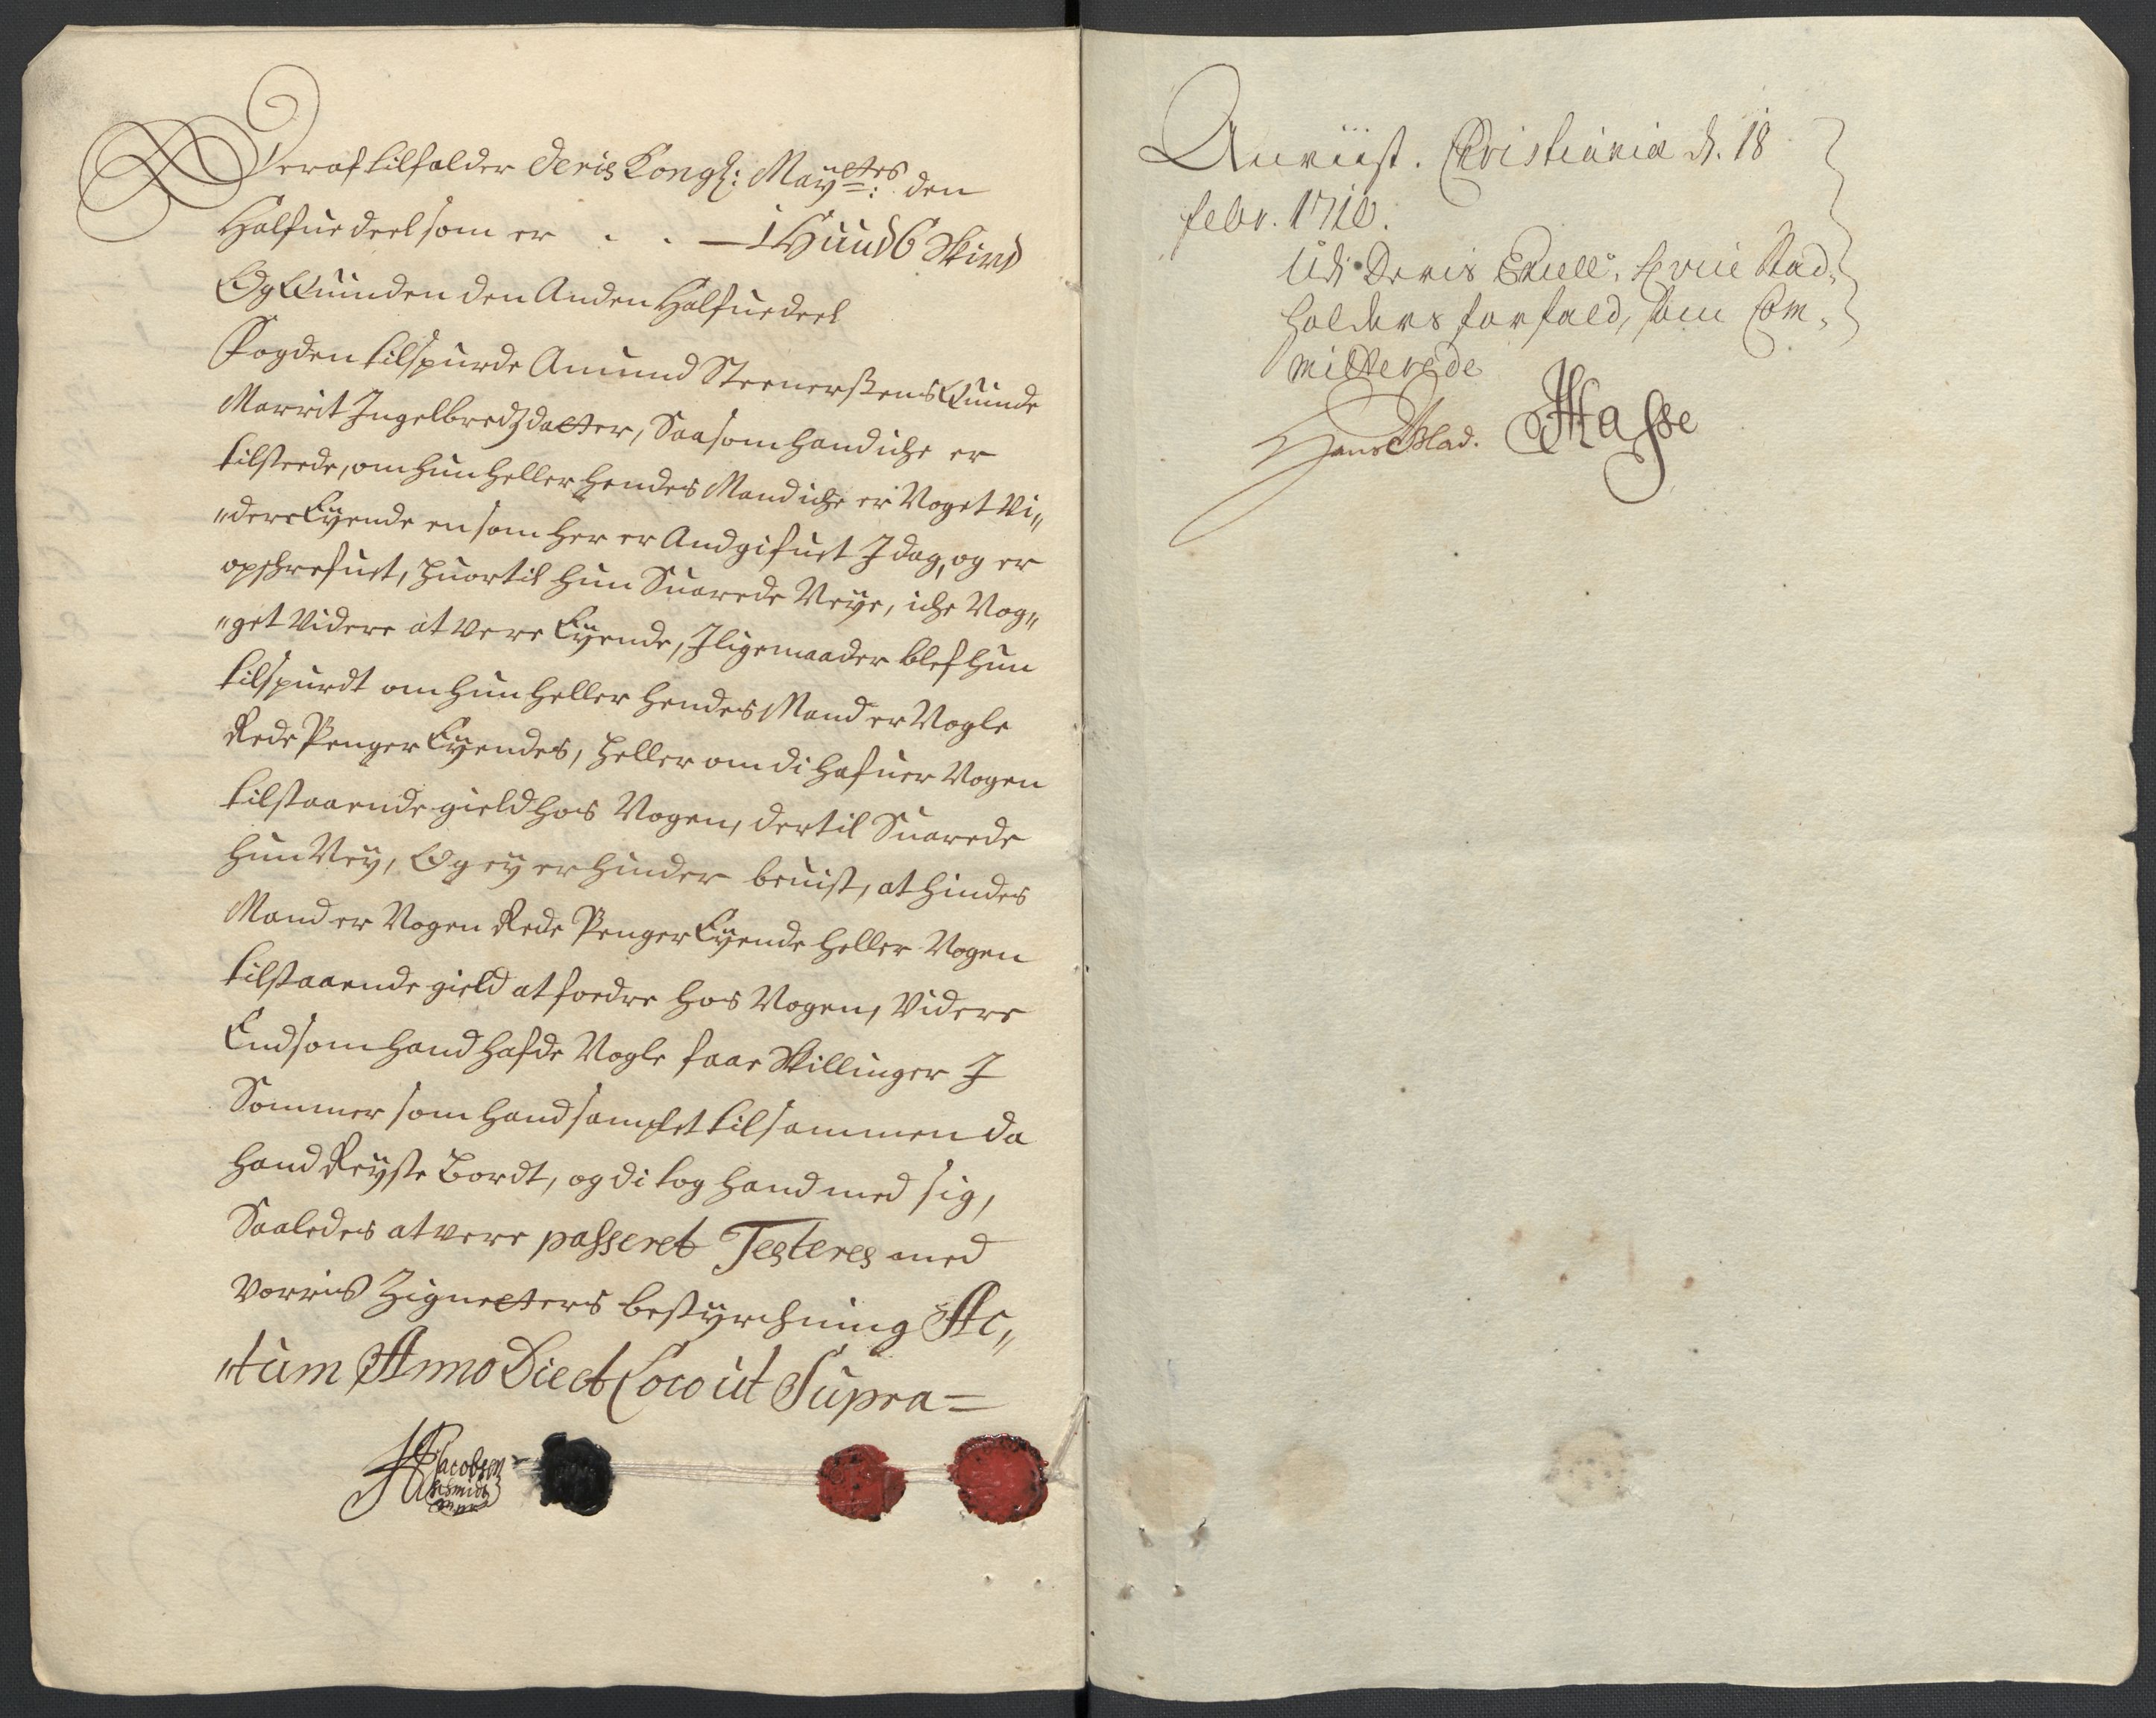 Deraf tilfalder Deris Kongl: May<sup>ttes</sup>: den
Halfue deel som er . . — 1 Huud 6 Skind
Og Quinden den Anden Halfue deel
Fogden tilspurde Amund Steenersßens Quinde
Marrit Ingelbredzdatter, Saasom hand iche er
tilstede, om hun heller hendes Mand iche er Noget Vi„
„dere Eyende en som her er Andgifuet I dag, og er
opschrefuet, huortil hun Suarede Neye, iche Nog„
„get Videre at vere Eyende, I ligemaader blef hun
tilspurdt om hun heller hendes Mand er Nogle
Rede Penger Eyendes, heller om di hafuer Nogen
tilstaaende gield hos Nogen, dertil Suarede
hun Ney, Og ey er hinder beuist, at hindes
Mand er Nogen Rede Penger Eyende heller Nogen
tilstaaende gield at fordre hos Nogen, Videre
End som hand hafde Nogle faae Skillinger I
Sommer som hand samlet tilsammen da
hand Reyste Bordt, og di tog hand med sig,
Saaledes at vere passeret Testeres med
vorris Zignetters bestyrchning Ac„
„tum Anno Die et Loco ut Supra =
Jacobsen
Schmidt
mpp
Anviist. Christiania d. 18
febr. 1710.
Udi Deris Excell: Herre Stad„
holders forfald, som Com„
mitterede
Hans Blad. Hasse